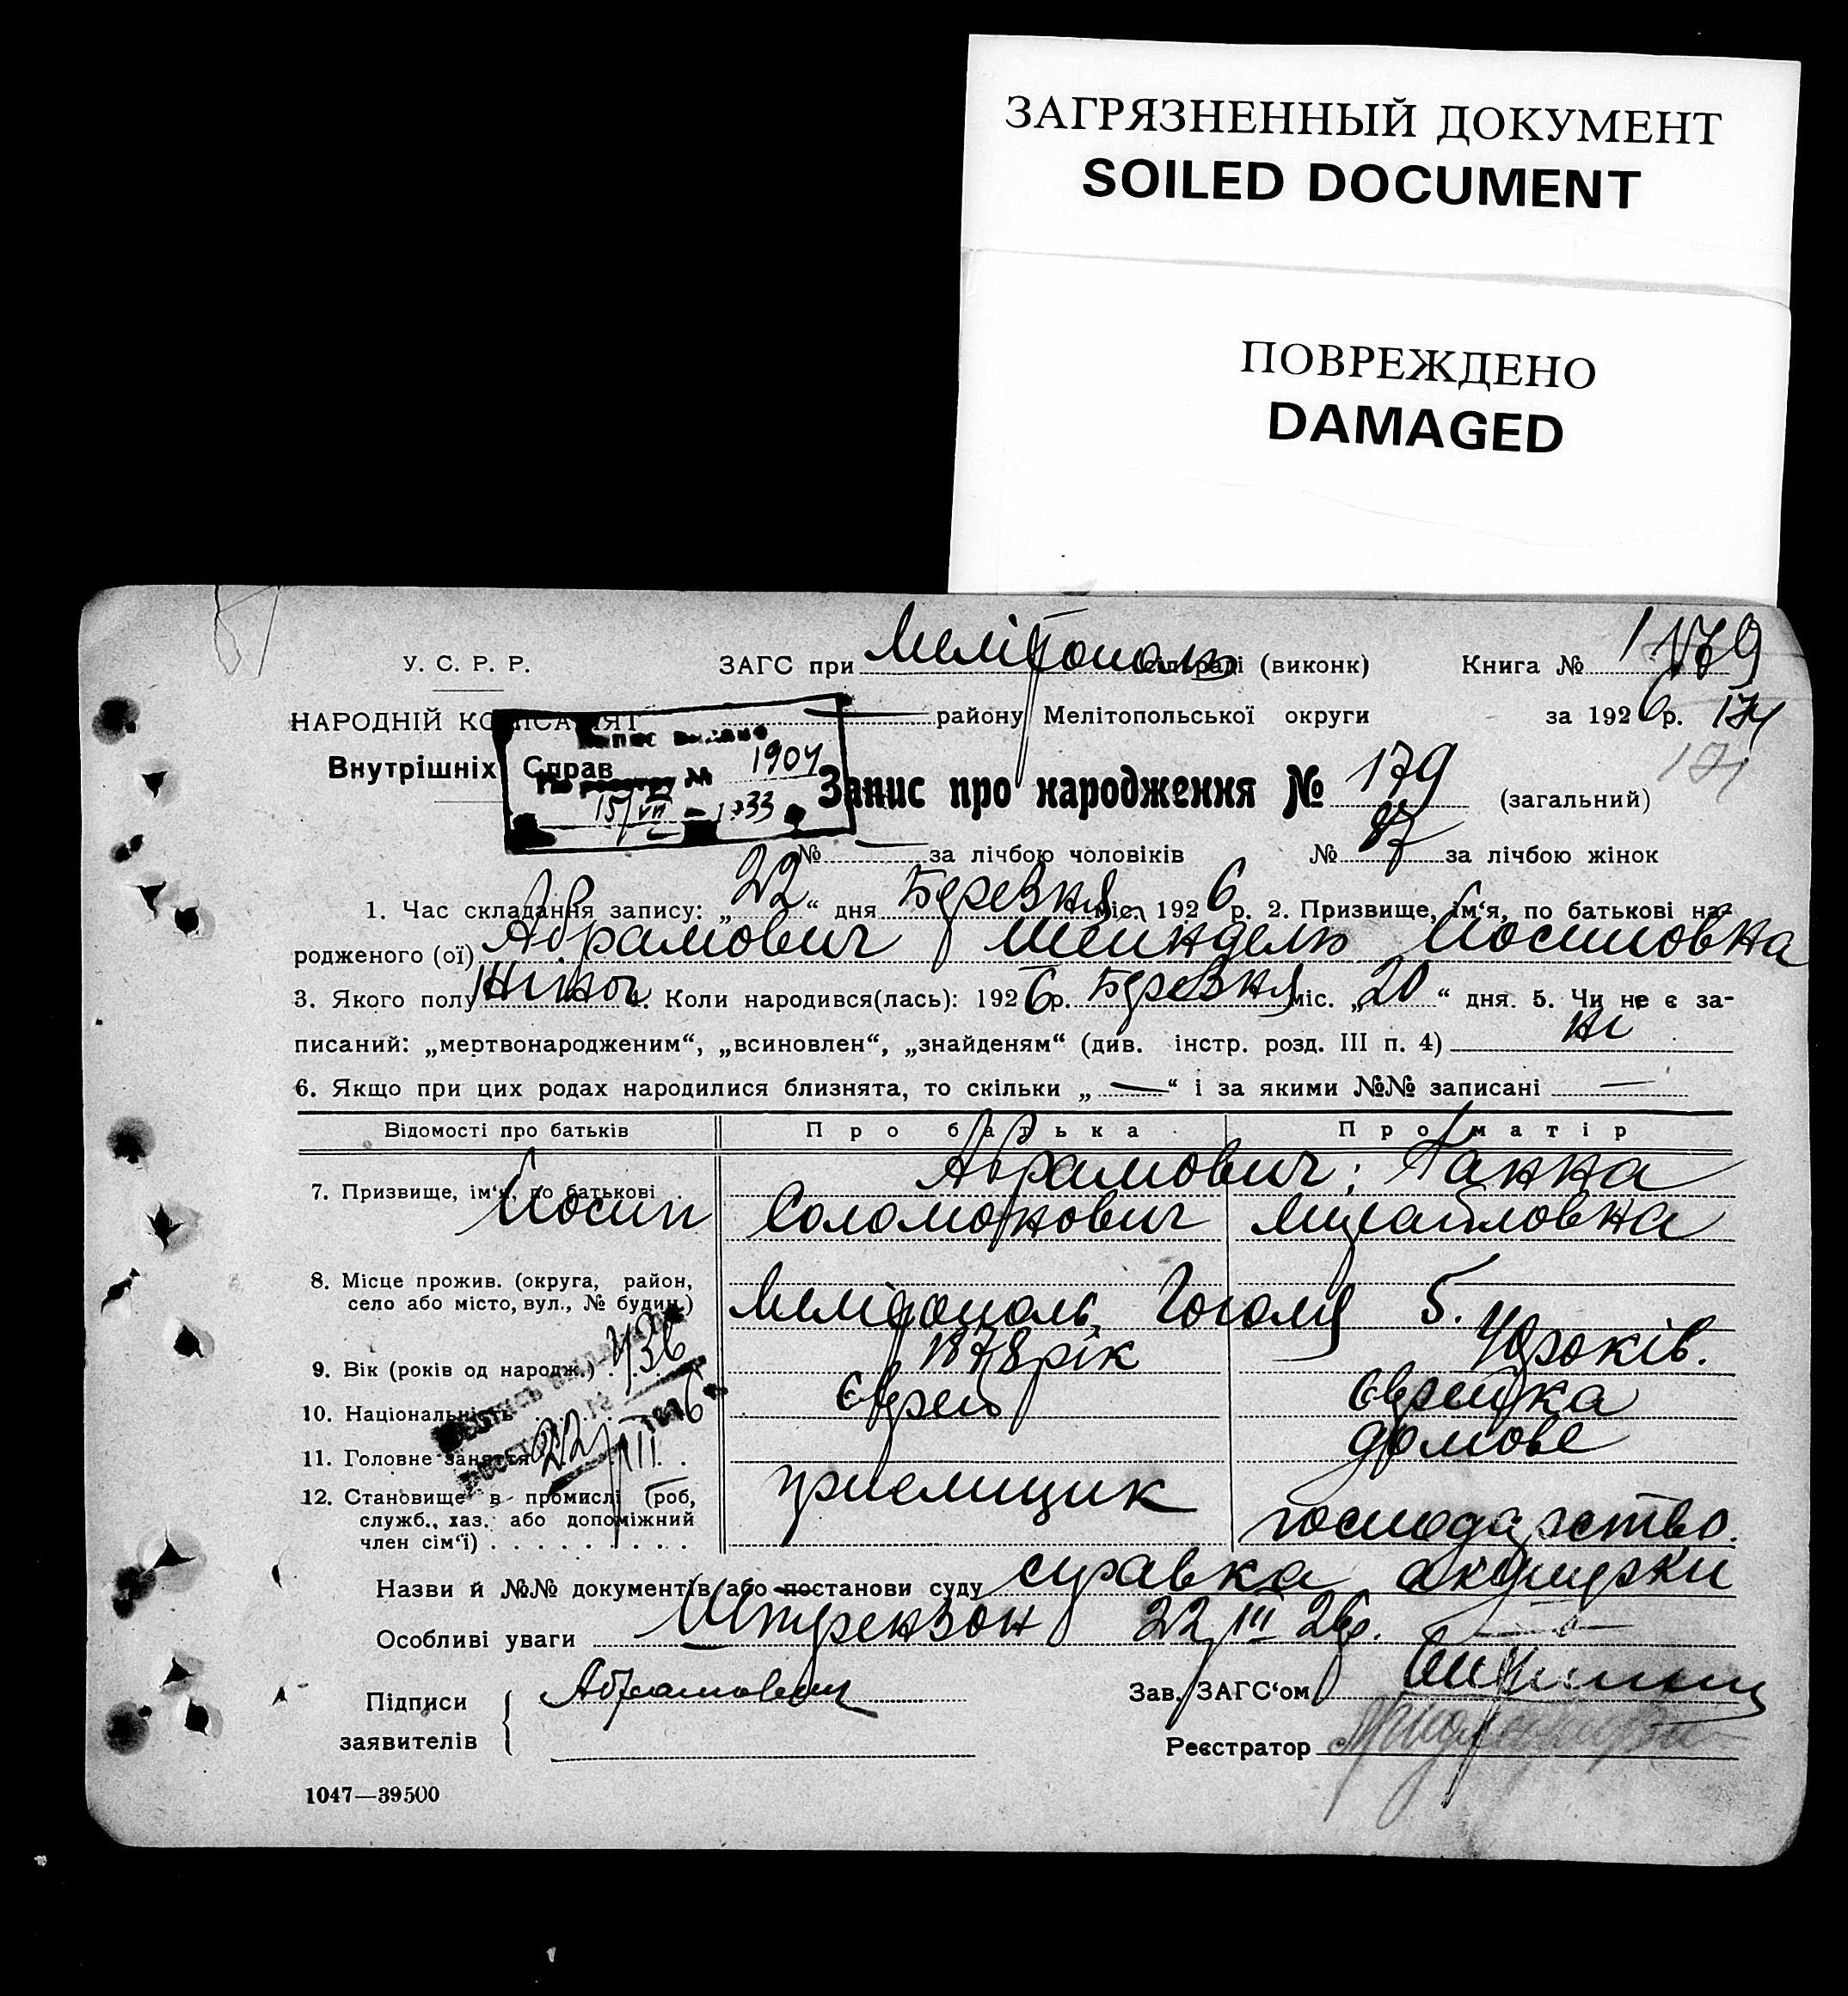 ЗАГРЯЗНЕННЫЙ ДОКУМЕНТ
SOILED DOCUMENT
ПОВРЕЖДЕНО
DAMAGED
У. С. Р. Р. ЗАГС при Мелітополь сільраді (виконк) Книга № 1 179
НАРОДНІЙ КОМІСАРІЯТ району Мелітопольської округи за 1926 р. 174
Внутрішніх Справ
171
№ 1904
15/VII - 1933
Запис про народження № 179 (загальний)
№ — за лічбою чоловіків № 87 за лічбою жінок
1. Час складання запису: „22“ дня Березня міс. 1926 р. 2. Призвище, ім‘я, по батькові на-
родженого (ої) Абрамович Шейндель Йосиповна
3. Якого полу жіноч. 4. Коли народився(лась): 1926 р. Березня міс. „20“ дня. 5. Чи не є за-
писаний: „мертвонародженим“, „всиновлен“, „знайденям“ (див. інстр. розд. III п. 4) ні
6. Якщо при цих родах народилися близнята, то скільки „—“ і за якими №№ записані —
Відомості про батьків Про батька Про матір
Абрамович; Ганна
7. Призвище, ім‘я, по батькові .
Йосип Соломонович Михайловна
8. Місце прожив. (округа, район,
село або місто, вул., № будин.) Мелітополь, Гоголя 5.
9. Вік (років од народж.) . . 1878 рік 40 років.
436
10. Національність Єврей Єврейка
22/III 1926
11. Головне заняття . . домове
12. Становище в промислі (роб, приемщик
служб., хаз. або допоміжний господарство.
член сім‘ї) . . . . . . . . .
Назви й №№ документів або постанови суду справка акушерки
Особливі уваги Штрензон 22/III 26р.
Підписи Абрамович Зав. ЗАГС‘ом
заявителів Реєстратор
1047—39500